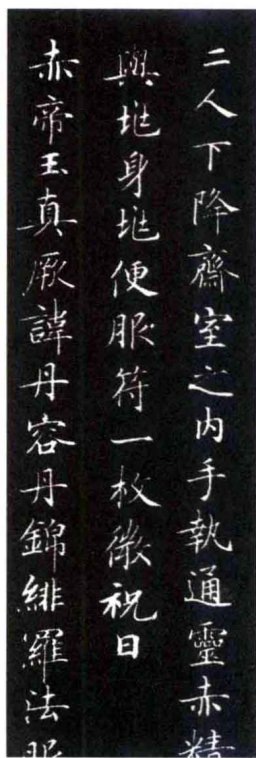 二人下降齋室之內手執通靈赤精
與地身地便服符一枚微祝曰
赤帝玉真厥諱丹容丹錦緋羅法服